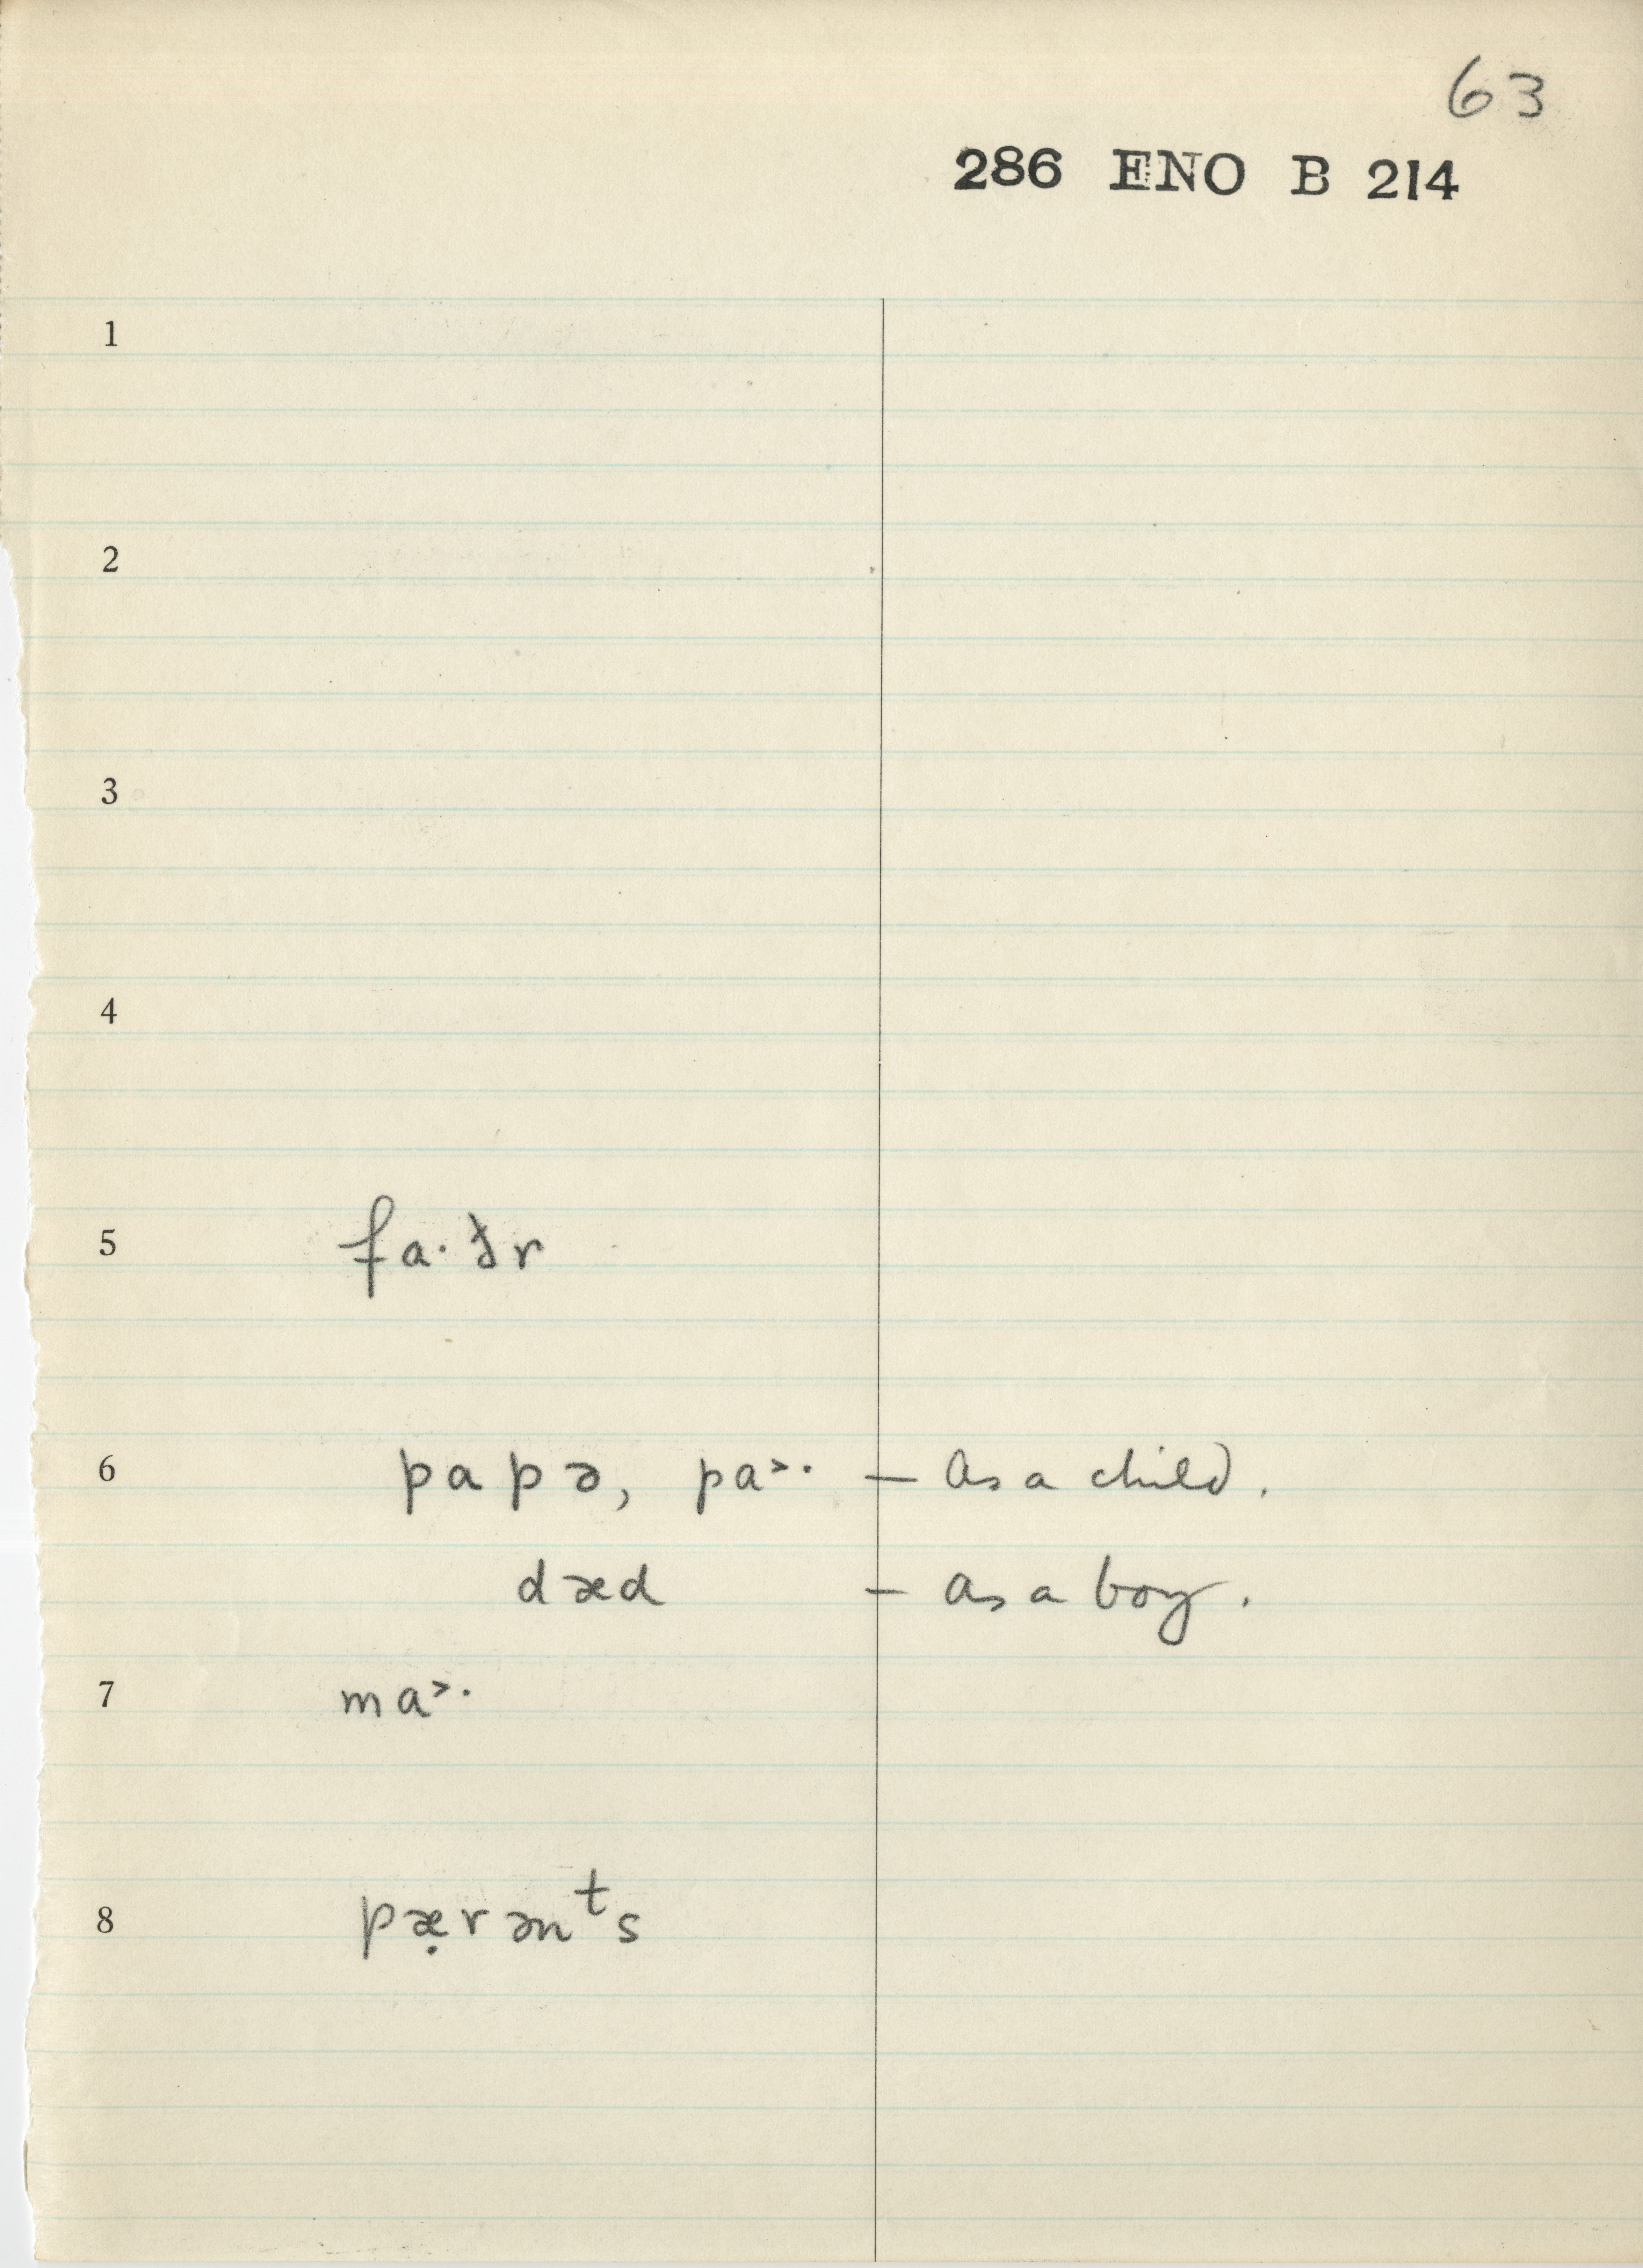 63
286 ENO B 214
1
2
3
4
5 fa·ðr
6 papə, pa˃· – as a child.
dæd – as a boy.
7 ma˃·
8 pæ̣rənᵗs